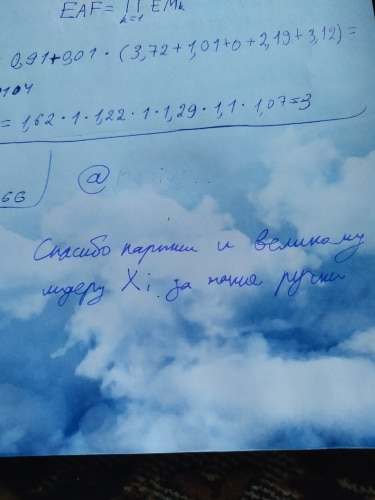 EAF = ∏ EMk
k=1
0,91+0,01·(3,72+1,01+0+2,19+3,12)=
0104
= 1,62·1·1,22·1·1,29·1,1·1,07=3
66
@
Спасибо партии и великому
лидеру Xi за наши ручки